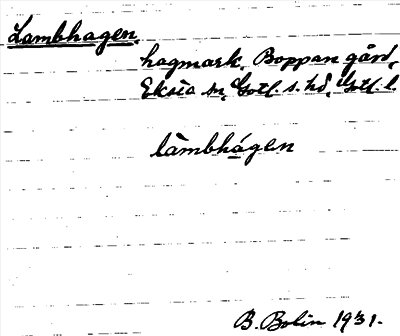 Lambhagen,
hagmark, Boppan gård,
Eksta sn, Gotl. s. hd, Gotl. l.
làmbhágen
B. Bolin 1931.